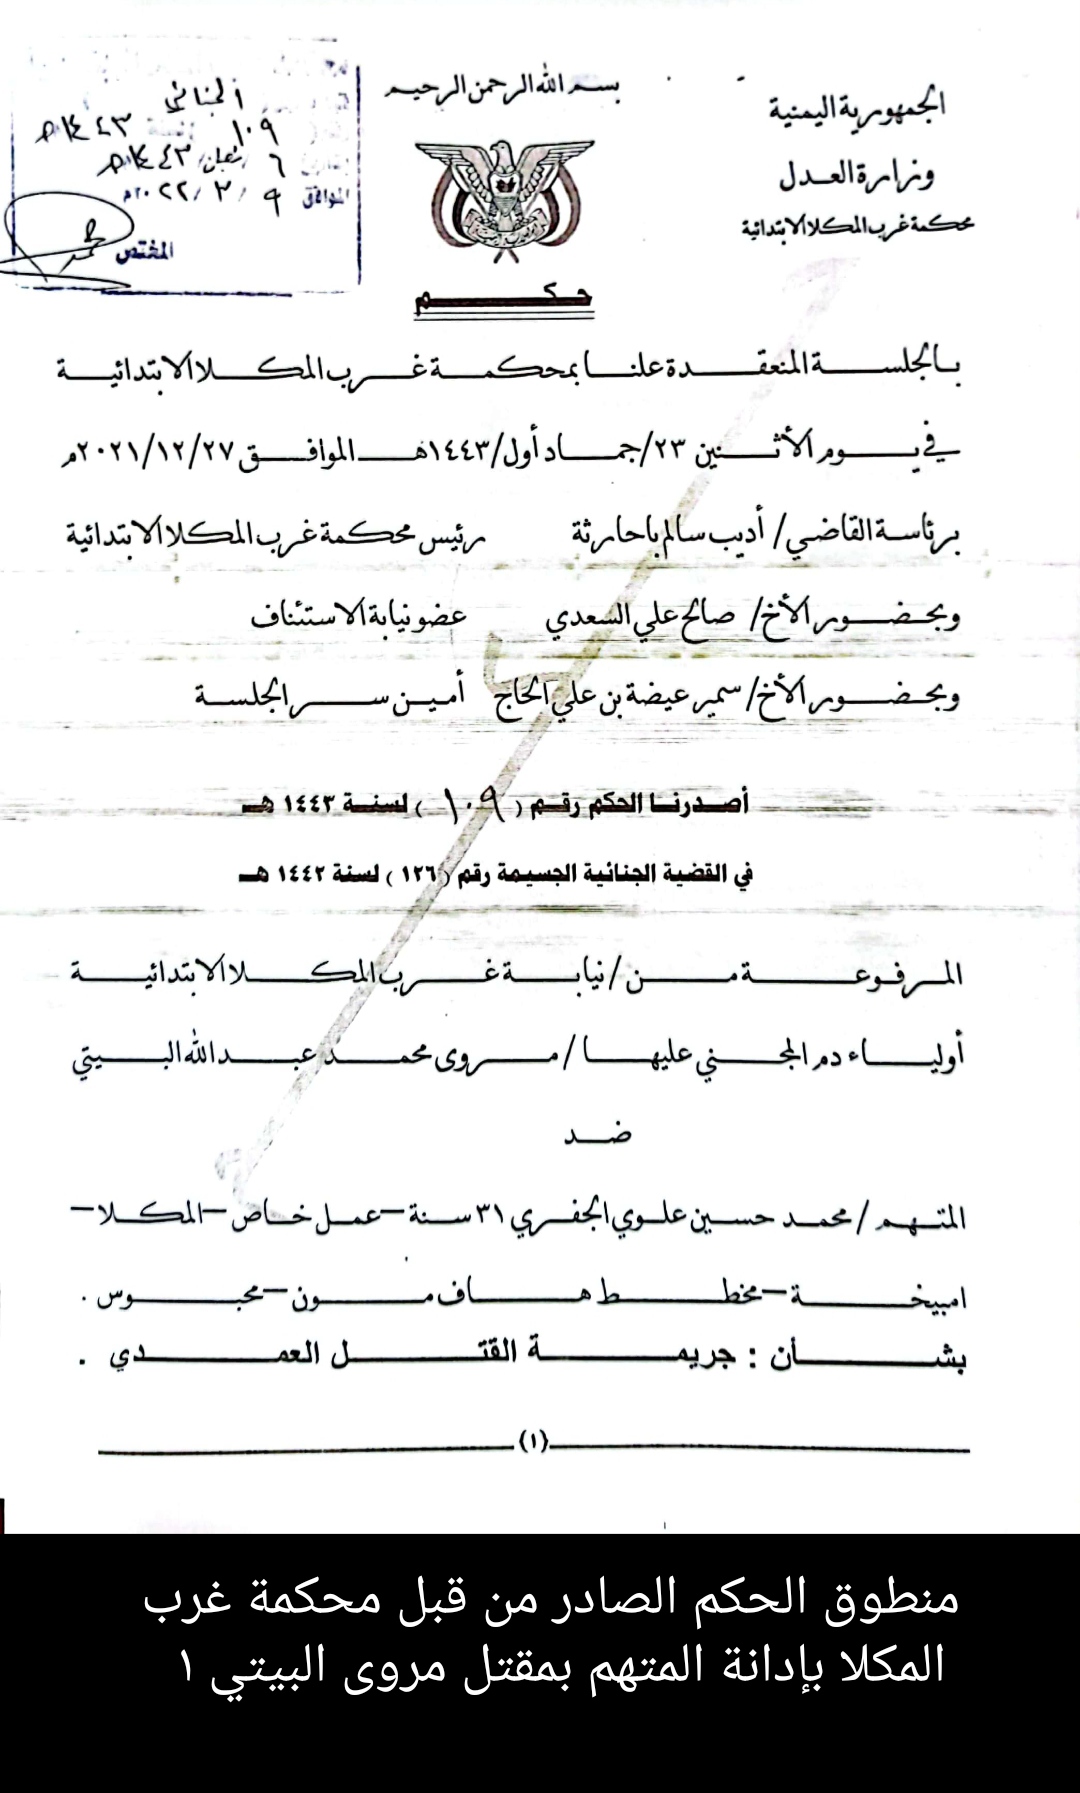 بسم الله الرحمن الرحيم
الجمهورية اليمنية
وزارة العدل
محكمة غرب المكلا الابتدائية
الجنائي
١٠٩ لسنة ١٤٤٣هـ
٦ / شعبان / ١٤٤٣هـ
الموافق ٩ / ٣ / ٢٠٢٢م
المختص
حكم
بالجلسة المنعقدة علنا بمحكمة غرب المكلا الابتدائية
في يوم الأثنين ٢٣/جماد أول/١٤٤٣هـ الموافق ٢٠٢١/١٢/٢٧م
برئاسة القاضي/ أديب سالم باحارثة رئيس محكمة غرب المكلا الابتدائية
وبحضور الأخ/ صالح علي السعدي عضو نيابة الاستئناف
وبحضور الأخ/ سمير عيضة بن علي الحاج أمين سر الجلسة
أصدرنا الحكم رقم (١٠٩) لسنة ١٤٤٣ هـ
في القضية الجنائية الجسيمة رقم (١٢٦) لسنة ١٤٤٢ هـ
المرفوعة من/ نيابة غرب المكلا الابتدائية
أولياء دم المجني عليها / مروى محمد عبدالله البيتي
ضد
المتهم / محمد حسين علوي الجفري ٣١ سنة – عمل خاص – المكلا –
امبيخة – مخطط هاف مون – محبوس .
بشأن : جريمة القتل العمدي .
(١)
منطوق الحكم الصادر من قبل محكمة غرب
المكلا بإدانة المتهم بمقتل مروى البيتي ١